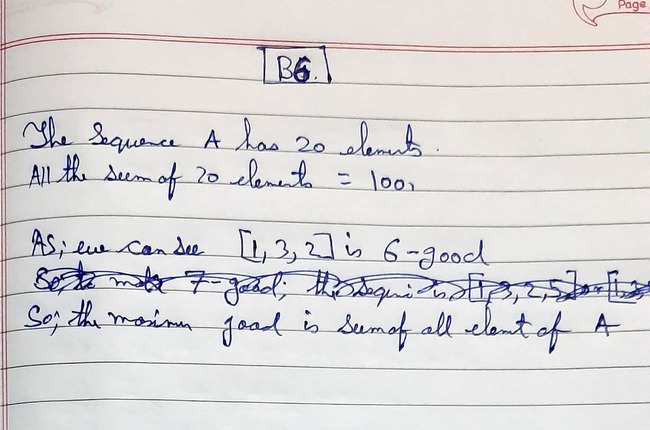 Page
B6.
The Sequence A has 20 elements.
All the sum of 20 elements = 100,
As; we can see [1, 3, 2] is 6-good
7-good; [1, 3, 2, 5]
So; the maximum good is sum of all elemt of A